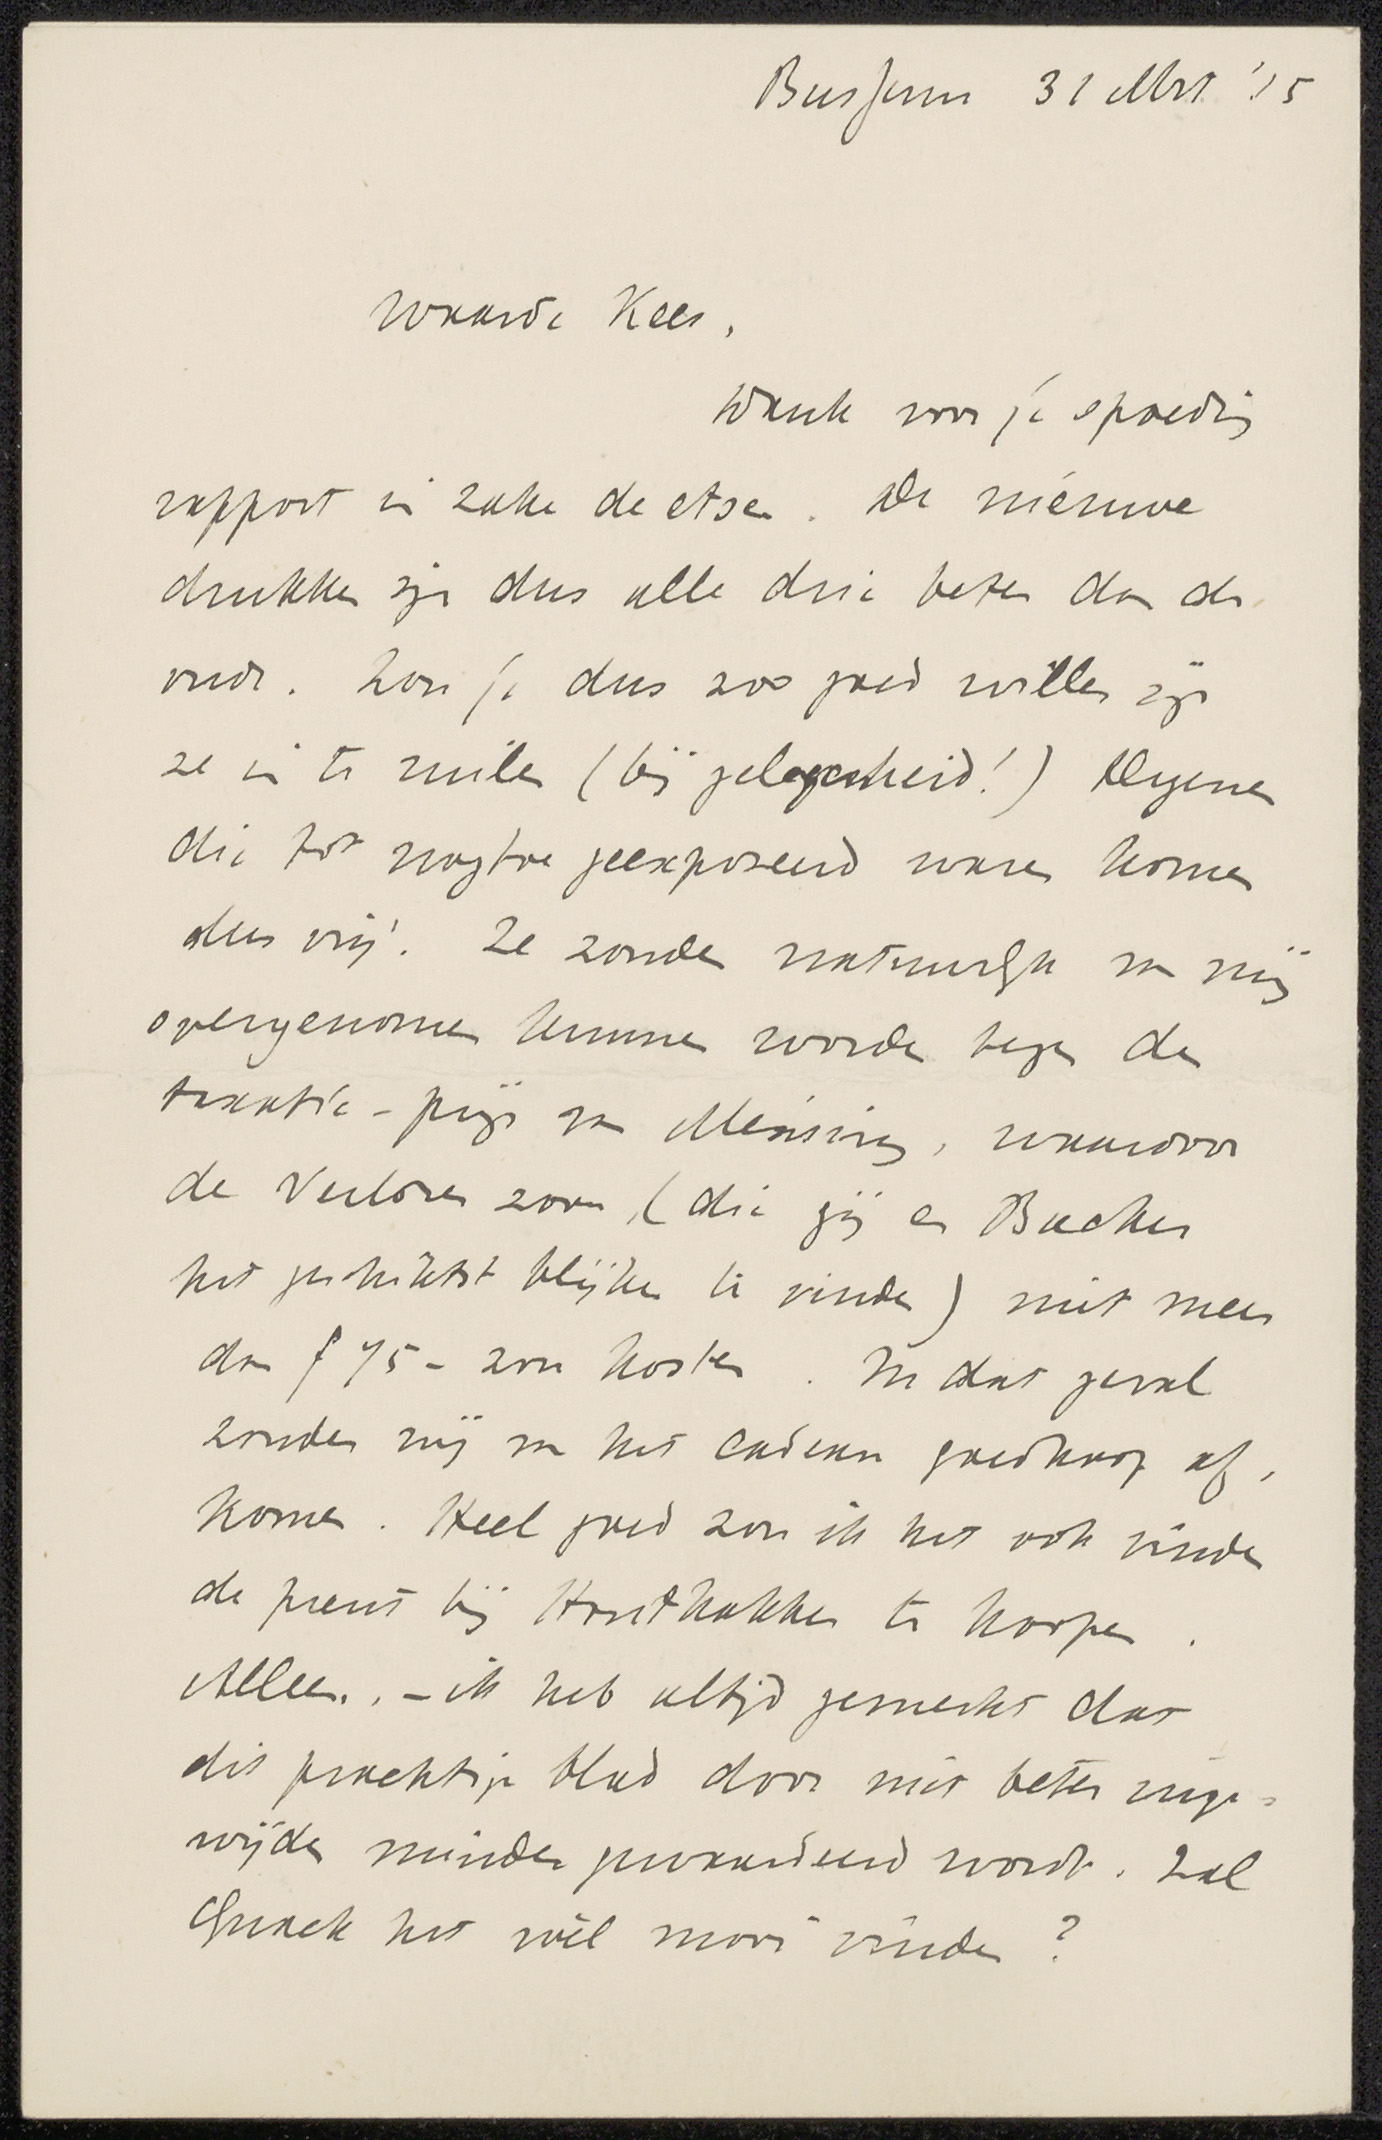 Bussum 31 Mrt '15
Waarde Kees,
Dank voor je spoedig
rapport in zake de etsen. De nieuwe
drukken zijn dus alle drie beter dan de
oude. Zou je dus zoo goed willen zijn
ze in te ruilen (bij gelegenheid!) Degenen
die tot nogtoe geexposeerd waren komen
dus vrij. Ze zouden natuurlijk van mij
overgenomen kunnen worden tegen de
taxatie-prijs van Mensing, waardoor
de Verloren zoon, (die gij en Backer
het geschiktst blijken te vinden) niet meer
dan f 75- zou kosten. In dat geval
zouden wij van het cadeau goedkoop af,
komen. Heel goed zou ik het ook vinden
de prent bij Houthakker te koopen.
Alleen, - ik heb altijd gemerkt dat
dit prachtige blad door niet beter inge-
wijden minder gewaardeerd wordt. Zal
het wel mooi vinden?